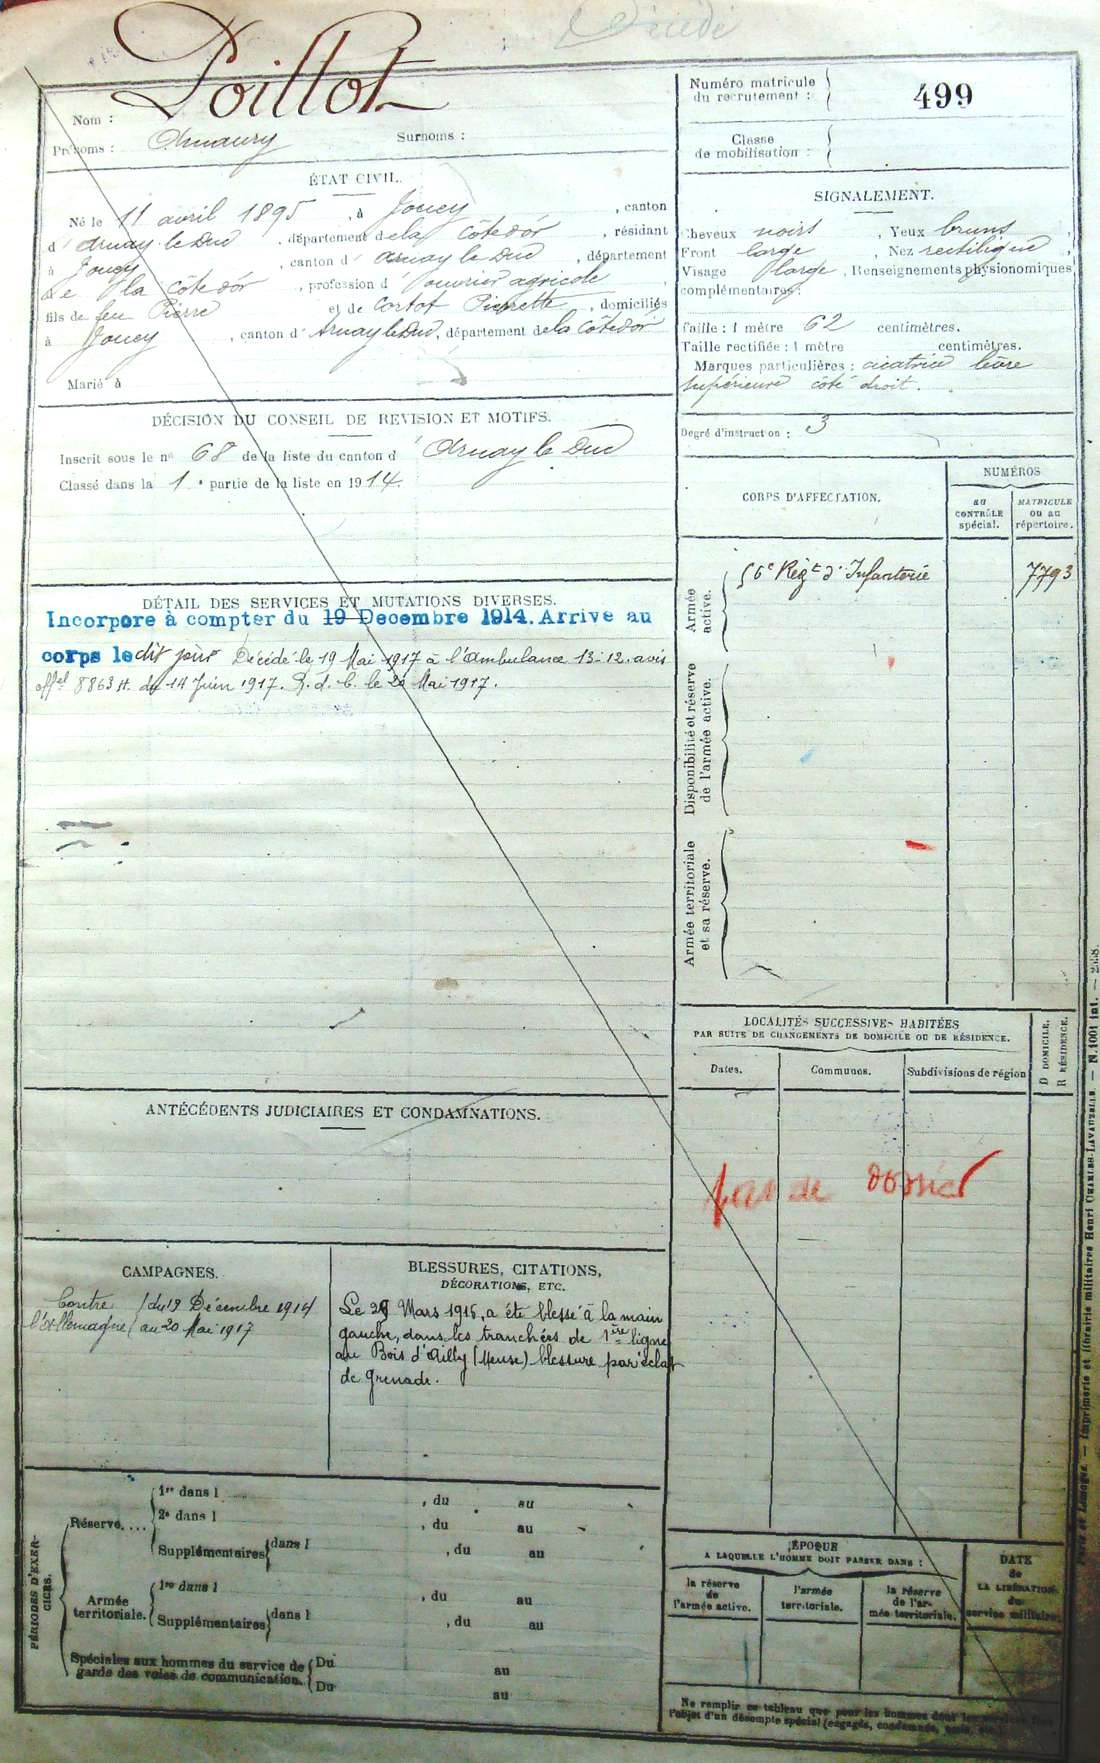 Décédé
Nom : Poillot
Prénoms : Amaury Surnoms :
ÉTAT CIVIL.
Né le 11 avril 1895, à Jouey, canton
d'Arnay le Duc, département de la Côte d'or, résidant
à Jouey, canton d'Arnay le Duc, département
de la Côte d'or, profession d'ouvrier agricole,
fils de feu Pierre et de Cortot Pierrette, domiciliés
à Jouey, canton d'Arnay le Duc, département de la Côte d'or
Marié à
DÉCISION DU CONSEIL DE REVISION ET MOTIFS.
Inscrit sous le n° 68 de la liste du canton d'Arnay le Duc
Classé dans la 1e partie de la liste en 1914.
DÉTAIL DES SERVICES ET MUTATIONS DIVERSES.
Incorpore à compter du 19 Decembre 1914. Arrive au
corps le dit jour Décédé le 19 Mai 1917 à l'ambulance 13-12. avis
offel 8863 H. du 14 Juin 1917. R. d. C. le 20 Mai 1917.
ANTÉCÉDENTS JUDICIAIRES ET CONDAMNATIONS.
CAMPAGNES.
Contre l'Allemagne
du 19 Décembre 1914
au 20 Mai 1917
BLESSURES, CITATIONS,
DÉCORATIONS, ETC.
Le Mars 1916, a été blessé à la main
gauche, dans les tranchées de 1ère ligne
au Bois d'Ailly (Meuse) blessure par éclat
de grenade.
PÉRIODES D'EXERCICES.
Réserve....
1re dans l , du au
2e dans l , du au
Supplémentaires dans l , du au
Armée territoriale.
1re dans l , du au
Supplémentaires dans l , du au
Spéciales aux hommes du service de garde des voies de communication.
Du au
Du au
Numéro matricule
du recrutement : 499
Classe
de mobilisation :
SIGNALEMENT.
Cheveux noirs, Yeux bruns,
Front large, Nez rectiligne
Visage large, Renseignements physionomiques
complémentaires :
Taille : 1 mètre 62 centimètres.
Taille rectifiée : 1 mètre centimètres.
Marques particulières : cicatrice lèvre
supérieure côté droit.
Degré d'instruction : 3
CORPS D'AFFECTATION.
NUMÉROS
au
CONTRÔLE
spécial.
MATRICULE
ou au
répertoire.
Armée
active.
56e Régt d'Infanterie 7793
Disponibilité et réserve
de l'armée active.
Armée territoriale
et sa réserve.
LOCALITÉS SUCCESSIVES HABITÉES
PAR SUITE DE CHANGEMENTS DE DOMICILE OU DE RÉSIDENCE.
Dates. Communes. Subdivisions de région
D DOMICILE.
R RÉSIDENCE.
pas de dossier
ÉPOQUE
A LAQUELLE L'HOMME DOIT PASSER DANS :
la réserve
de
l'armée active.
l'armée
territoriale.
la réserve
de l'ar-
mée territoriale.
DATE
de
LA LIBÉRATION
du
service militaire.
Ne remplir ce tableau que pour les hommes dont les services font
l'objet d'un décompte spécial (engagés, condamnés, omis, etc.).
Paris et Limoges. — Imprimerie et librairie militaires Henri CHARLES-LAVAUZELLE. — N. 1001 int. —